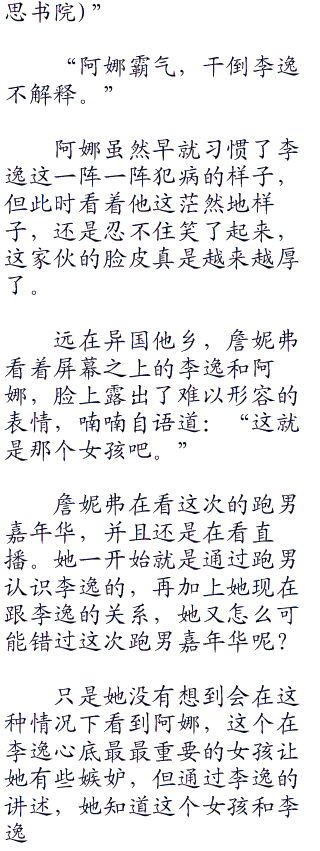 思书院）”
“阿娜霸气，干倒李逸
不解释。”
阿娜虽然早就习惯了李
逸这一阵一阵犯病的样子，
但此时看着他这茫然地样
子，还是忍不住笑了起来，
这家伙的脸皮真是越来越厚
了。
远在异国他乡，詹妮弗
看着屏幕之上的李逸和阿
娜，脸上露出了难以形容的
表情，喃喃自语道：“这就
是那个女孩吧。”
詹妮弗在看这次的跑男
嘉年华，并且还是在看直
播。她一开始就是通过跑男
认识李逸的，再加上她现在
跟李逸的关系，她又怎么可
能错过这次跑男嘉年华呢？
只是她没有想到会在这
种情况下看到阿娜，这个在
李逸心底最最重要的女孩让
她有些嫉妒，但通过李逸的
讲述，她知道这个女孩和李
逸